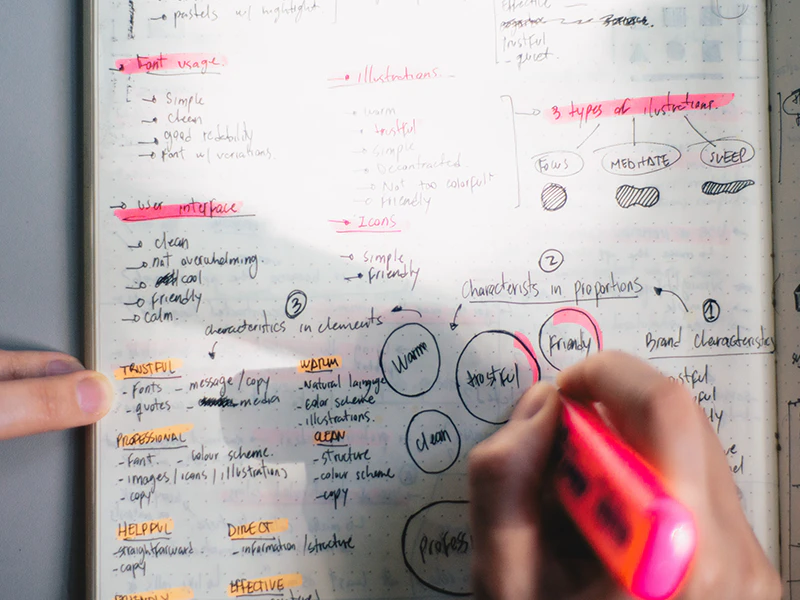 pastels w/ highlight
Effective
trustful
- quiet.
Font usage
Simple
clean
good redebility
Font w/ variations.
illustrations.
warm
trustful
Simple
Decontracted
Not too colorfult
Friendly
3 types of ilustrations.
Focus
MEDITATE
SLEEP
user interface
clean
not overwhelming
cool
Friendly
calm.
Icons
simple
Friendly
3
characteristics in elements
2
Characterists in proportions
1
Brand characteristics
TRUSTFUL
- Fonts - message/copy
- quotes - media
WARM
- Natural language
- Color scheme
- illustrations.
PROFESSIONAL
- Font. - colour scheme.
- images/icons/illustrations
- copy
CLEAN
- structure
- colour scheme
- copy
HELPFUL
- straightforward
- copy
DIRECT
- information/structure
FRIENDLY
EFFECTIVE
Warm
trustful
Friendly
clean